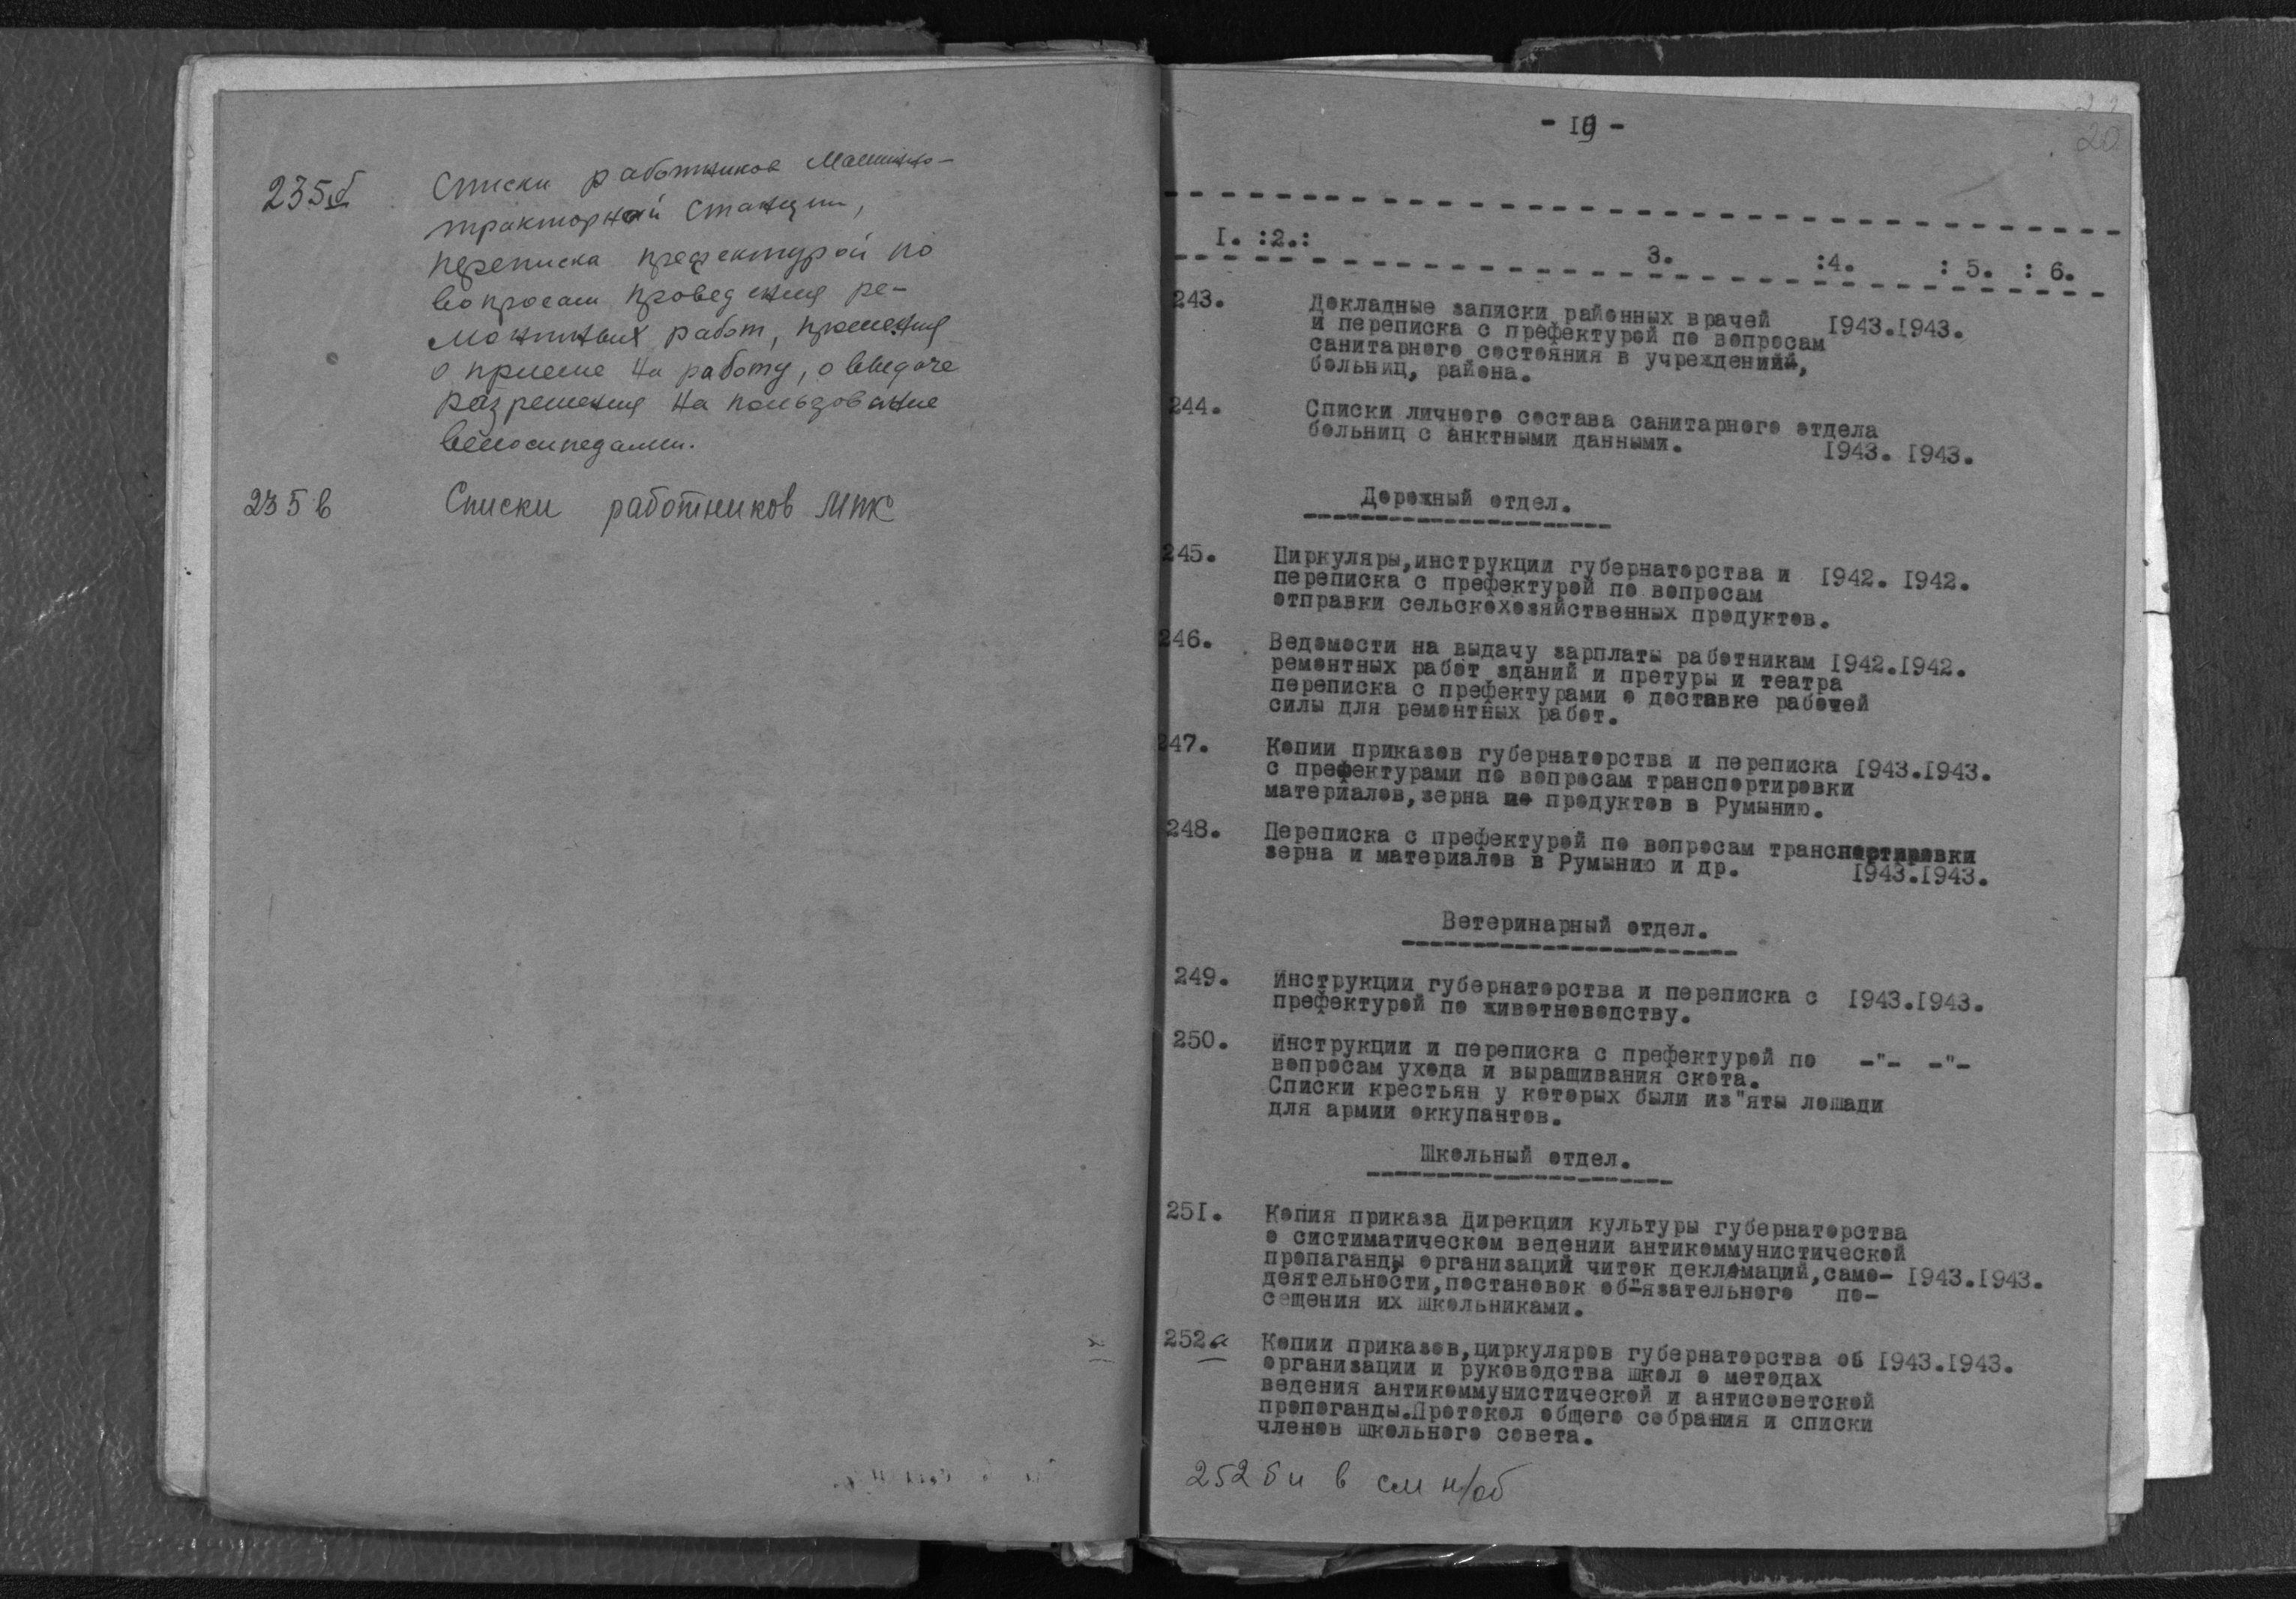 235б Списки работников Машинно-
тракторной станции,
переписка префектурой по
вопросам проведения ре-
монтных работ, прошения
о приеме на работу, о выдаче
разрешения на пользование
велосипедами.
235в Списки работников МТК
22
20
- 19 -
I. :2.: 3. :4. : 5. : 6.
243. Докладные записки районных врачей I943.I943.
и переписка с префектурой по вопросам
санитарного состояния в учреждений,
больниц, района.
244. Списки личного состава санитарного отдела
больниц с анктными данными. I943. I943.
Дорожный отдел.
245. Циркуляры,инструкции губернаторства и I942. I942.
переписка с префектурой по вопросам
отправки сельскохозяйственных продуктов.
246. Ведомости на выдачу зарплаты работникам I942.I942.
ремонтных работ зданий и претуры и театра
переписка с префектурами о доставке рабочей
силы для ремонтных работ.
247. Копии приказов губернаторства и переписка I943.I943.
с префектурами по вопросам транспортировки
материалов,зерна продуктов в Румынию.
248. Переписка с префектурой по вопросам транспортировки
зерна и материалов в Румынию и др. I943.I943.
Ветеринарный отдел.
249. Инструкции губернаторства и переписка с I943.I943.
префектурой по животноводству.
250. Инструкции и переписка с префектурой по -"- -"-
вопросам ухода и выращивания скота.
Списки крестьян у которых были из"яты лошади
для армии оккупантов.
Школьный отдел.
25I. Копия приказа Дирекции культуры губернаторства
о систиматическом ведении антикоммунистической
пропаганды организаций читок декламаций,само- I943.I943.
деятельности,постановок об"язательного по-
сещения их школьниками.
252а Копии приказов,циркуляров губернаторства об I943.I943.
организации и руководства школ о методах
ведения антикоммунистической и антисоветской
пропоганды.Протокол общего собрания и списки
членов школьного совета.
252 б и в см н/об